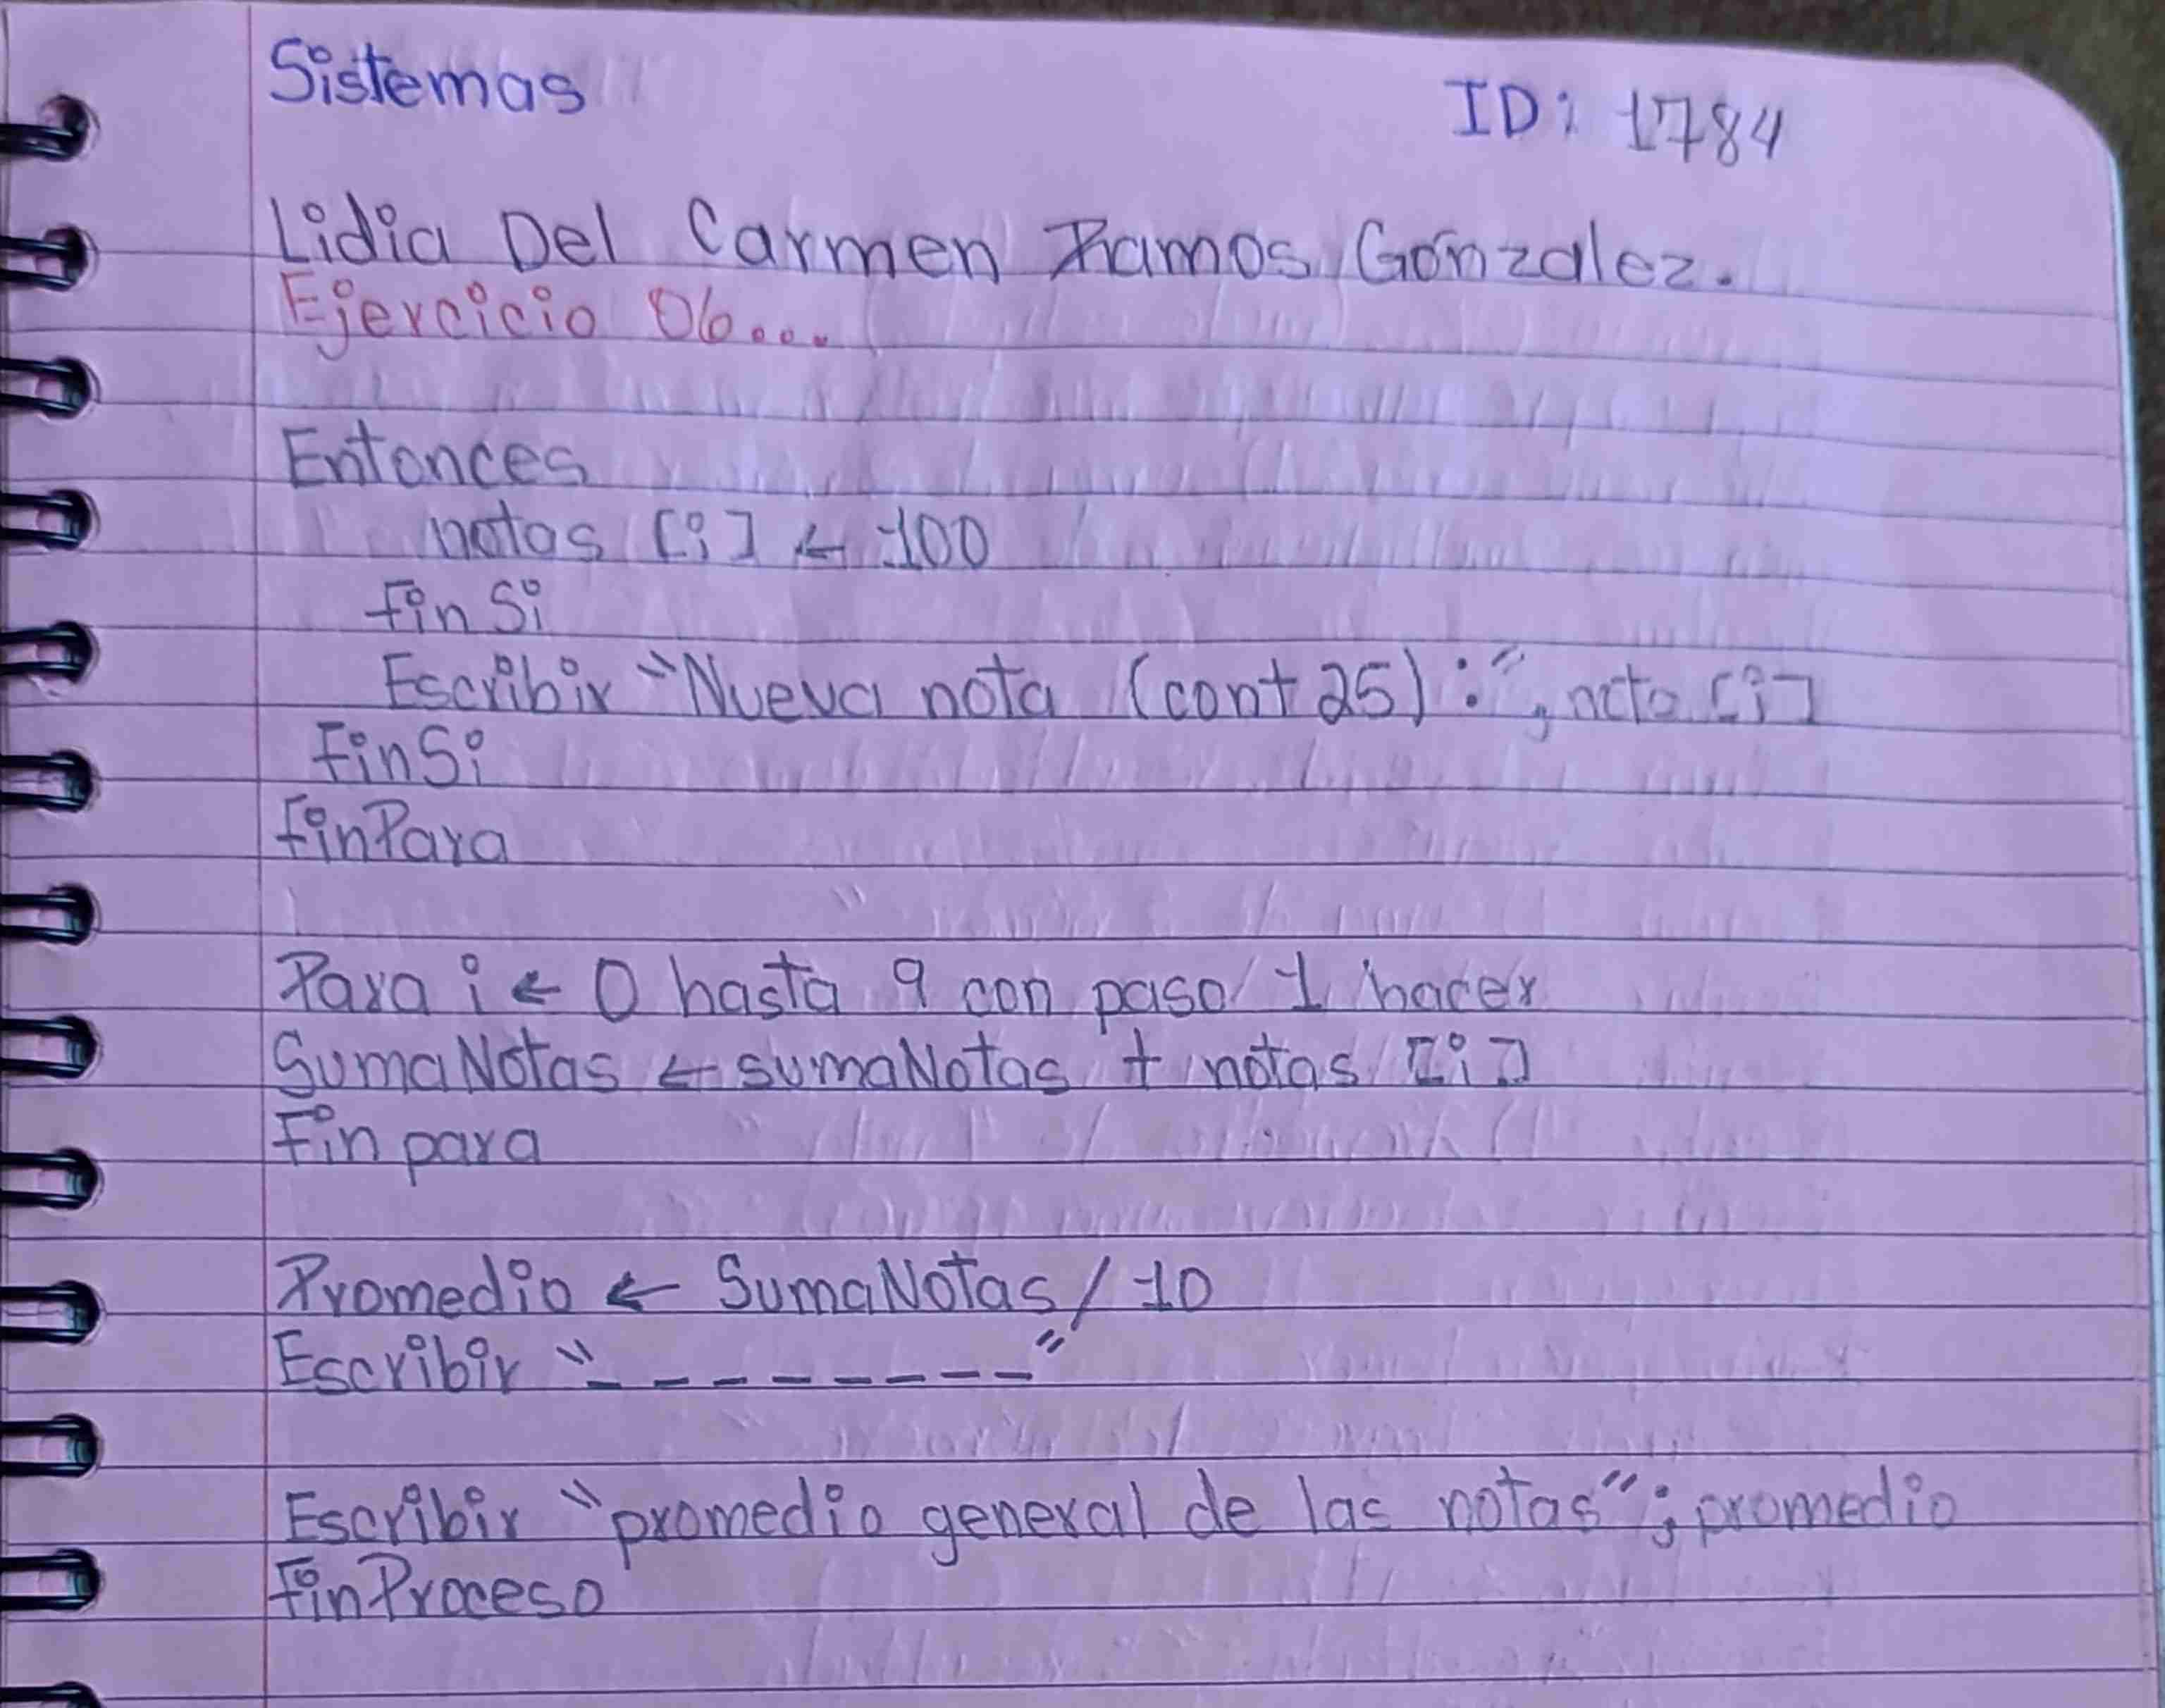 Sistemas
ID: 1784
Lidia Del Carmen Ramos Gónzalez.
Ejercicio 06...
Entonces
notas [i] ← 100
finSi
Escribir "Nueva nota (cont 25):", nota [i]
FinSi
finPara
Para i ← 0 hasta 9 con paso 1 hacer
SumaNotas ← sumaNotas + notas [i]
Fin para
Promedio ← SumaNotas / 10
Escribir "_ _ _ _ _ _ _ _"
Escribir "promedio general de las notas"; promedio
finProceso